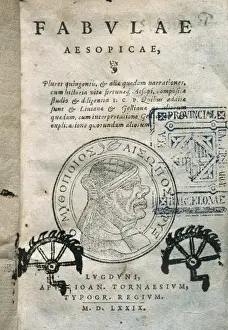 FABVLAE
AESOPICAE,
Plures quingentis, & aliæ quædam narrationes,
cum historia vitæ fortunæq́; Aesopi, compositæ
studio & diligentia I. C. P. Quibus additæ
sunt & Liuianæ & Gellianæ
quædam, cum interpretatione
explicatione quorundam
PROVINCIAL
BARCELONA
ΜΥΘΟΠΟΙΟΣ ΑΙΣΩΠΟΣ
LVGDVNI,
APVD IOAN. TORNAESIVM,
TYPOGR. REGIVM.
M. D. LXXIX.